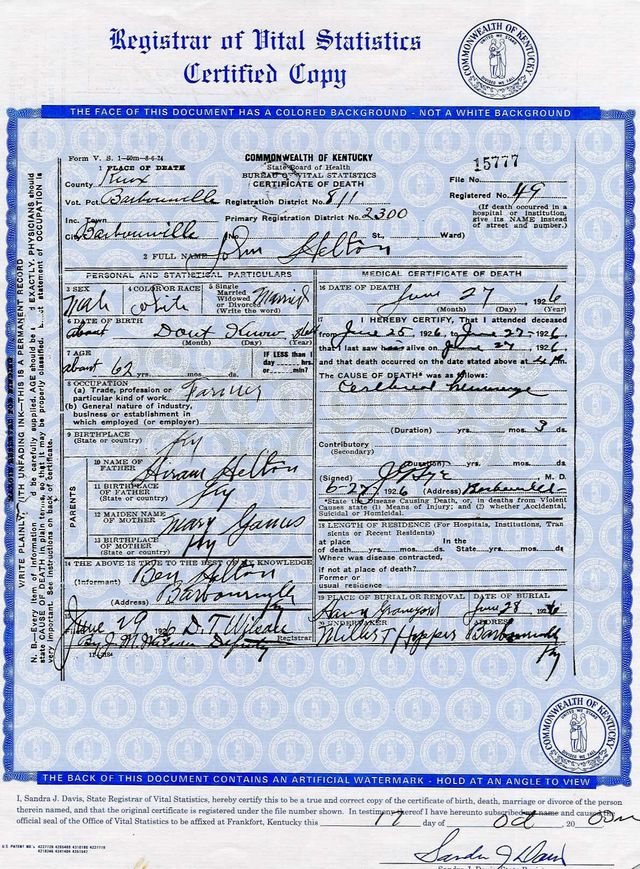 Registrar of Vital Statistics
Certified Copy
COMMONWEALTH OF KENTUCKY
UNITED WE STAND
DIVIDED WE FALL
THE FACE OF THIS DOCUMENT HAS A COLORED BACKGROUND - NOT A WHITE BACKGROUND
Form V. S. 1-50m-8-6-24
COMMONWEALTH OF KENTUCKY
State Board of Health
BUREAU OF VITAL STATISTICS
CERTIFICATE OF DEATH
15777
1 PLACE OF DEATH
County Knox
File No.
Vot. Pct. Barbourville Registration District No. 811
Registered No. 49
Inc. Town
Primary Registration District No. 2300
(If death occurred in a hospital or institution, give its NAME instead of street and number.)
City Barbourville No. St., Ward)
2 FULL NAME John Helton
PERSONAL AND STATISTICAL PARTICULARS
3 SEX
4 COLOR OR RACE
5 Single
Married
Widowed
or Divorced
(Write the word)
Male white Married
6 DATE OF BIRTH
about Dont Know
(Month) (Day) (Year)
7 AGE
about 62 yrs. mos. ds.
IF LESS than 1
day hrs.
or min?
8 OCCUPATION
(a) Trade, profession or
particular kind of work Farmer
(b) General nature of industry,
business or establishment in
which employed (or employer)
9 BIRTHPLACE
(State or country) Ky
PARENTS
10 NAME OF
FATHER Hiram Helton
11 BIRTHPLACE
OF FATHER
(State or country) Ky
12 MAIDEN NAME
OF MOTHER Mary
13 BIRTHPLACE
OF MOTHER
(State or country) Ky
14 THE ABOVE IS TRUE TO THE BEST OF MY KNOWLEDGE
(Informant) Ben Helton
(Address) Barbourville
15
June 29 1926 D. T.
Registrar
By J. M. Deputy
MEDICAL CERTIFICATE OF DEATH
16 DATE OF DEATH
June 27 1926
(Month) (Day) (Year)
17 I HEREBY CERTIFY, That I attended deceased
from June 25 1926, to June 27 1926
that I last saw h alive on June 27 1926,
and that death occurred on the date stated above at 4
The CAUSE OF DEATH* was as follows:
Cerebral
(Duration) yrs. mos. 3 ds.
Contributory
(Secondary)
(Duration) yrs. mos. ds.
(Signed) M. D.
1926 (Address) Barbourville
*State the Disease Causing Death, or, in deaths from Violent
Causes state (1) Means of Injury; and (2) whether Accidental,
Suicidal or Homicidal.
18 LENGTH OF RESIDENCE (For Hospitals, Institutions, Transients or Recent Residents)
At place In the
of death yrs. mos. ds. State yrs. mos. ds.
Where was disease contracted,
if not at place of death?
Former or
usual residence
19 PLACE OF BURIAL OR REMOVAL DATE OF BURIAL
June 28 1926
20 UNDERTAKER ADDRESS
Miller T Hoppers Barbourville
Ky
MARGIN RESERVED FOR BINDING
WRITE PLAINLY, WITH UNFADING INK—THIS IS A PERMANENT RECORD
COMMONWEALTH OF KENTUCKY
THE BACK OF THIS DOCUMENT CONTAINS AN ARTIFICIAL WATERMARK - HOLD AT AN ANGLE TO VIEW
I, Sandra J. Davis, State Registrar of Vital Statistics, hereby certify this to be a true and correct copy of the certificate of birth, death, marriage or divorce of the person
therein named, and that the original certificate is registered under the file number shown. In testimony thereof I have hereunto subscribed my name and caused the
official seal of the Office of Vital Statistics to be affixed at Frankfort, Kentucky this 17 day of Oct 20
Sandra J. Davis